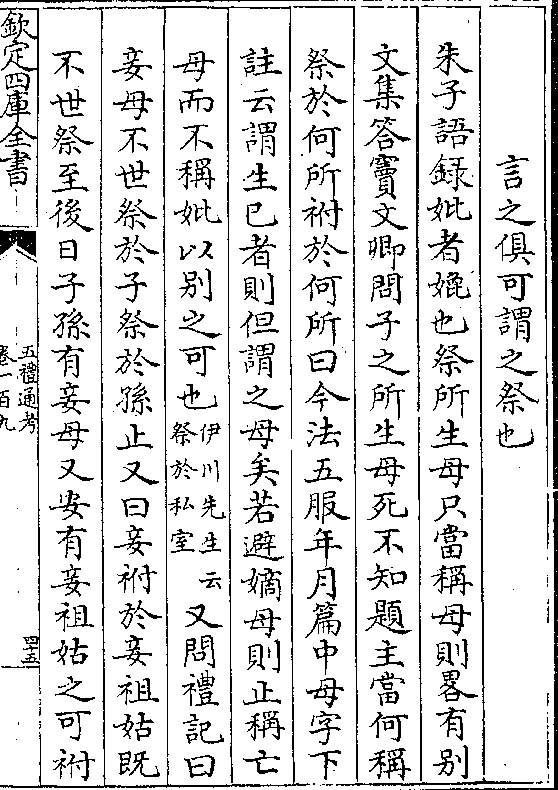 言之俱可謂之祭也
朱子語録妣者媲也祭所生母只當稱母則畧有别
文集答竇文卿問子之所生母死不知題主當何稱
祭於何所祔於何所曰今法五服年月篇中母字下
註云謂生己者則但謂之母矣若避嫡母則止稱亡
母而不稱妣以别之可也伊川先生云祭於私室又問禮記曰
妾母不世祭於子祭於孫止又曰妾祔於妾祖姑既
不世祭至後日子孫有妾母又安有妾祖姑之可祔
欽定四庫全書
五禮通考
卷一百九
四十五